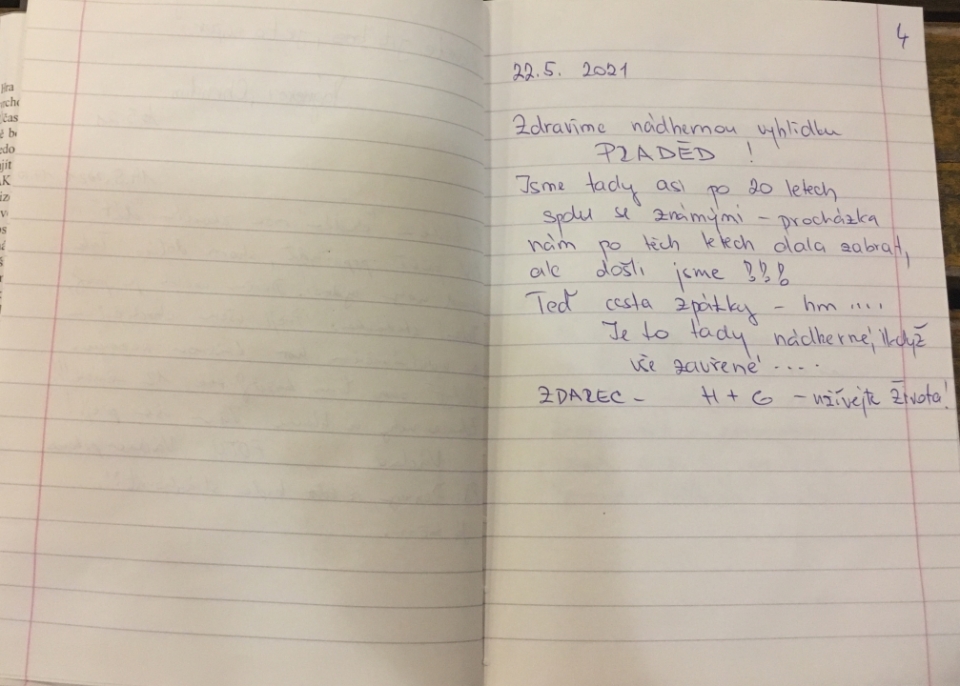 4
22.5. 2021
Zdravíme nádhernou vyhlídku
PRADĚD !
Jsme tady asi po 20 letech
spolu se známými – procházka
nám po těch letech dala zabrat,
ale došli jsme !!!
Teď cesta zpátky – hm ....
Je to tady nádherné, ikdyž
vše zavřené ....
ZDAREC – H + G – užívejte života!